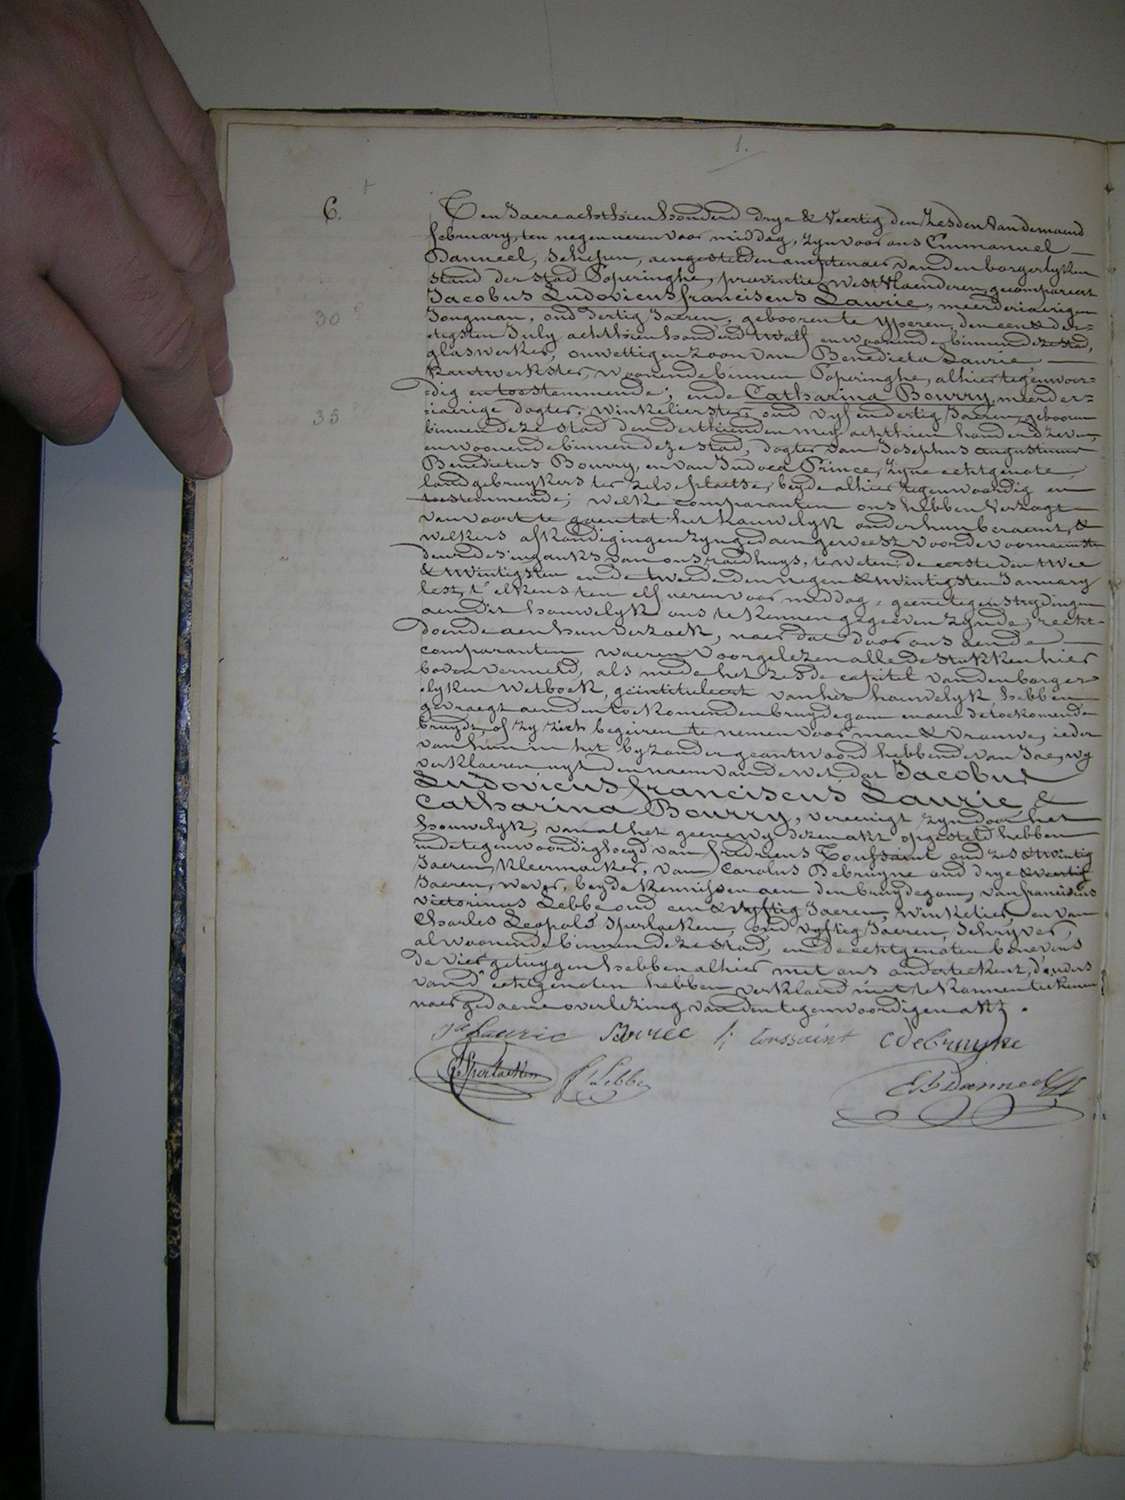 1.
6.
Ten Jaere achthien honderd drye & Veertig den Zesden van de maand
february, ten negen ueren voor middag, zyn voor ons Emmanuel
Danneel, Schepen, aengestelden amptenaer van den borgerlyken
stand der stad Poperinghe, provintie Westvlaenderen, gecompareert
Jacobus Ludovicus franciscus Laurie, meerderjaerigen
30
Jongman, oud dertig Jaeren, geboren te Yperen, den een & der-
tigsten July achthien honderd Twalf en woonende binnen deze stad,
glaswerker, onwettigen zoon van Benedicta Laurie
Kantwerkster, woonende binnen Poperinghe, alhier tegenwoor-
dig en toestemmende; ende Catharina Bourry, meerder-
35
jaerige dogter, winkelierster, oud vyf en dertig Jaeren, geboren
binnen deze stad den derthienden mey achthien honderd zeven,
en woonende binnen deze stad, dogter van Josephus augustinus
Benedictus Bourry, en van Judoca Prince, zyne echtgenote,
landgebruykers ter zelve plaetse, beyde alhier tegenwoordig en
toestemmende; welke comparanten ons hebben verzogt
van voort te gaen tot het hauwelyk onder hun beraemt, &
welkers afkondigingen zyn gedaen geweest voor de voornaemste
deure des ingangs van ons raedhuys, te weten, de eerste den twee
& twintigsten en de tweede den negen & twintigsten January
lest, t'elkens ten elf ueren voor middag, geene tegenstrydingen
aen dit houwelyk ons te kennen gegeeven zynde, recht-
doende aen hun verzoek, naer dat door ons aen de
comparanten waeren voorgelezen alle de stukken hier
boven vermeld, als mede het zesde capitel van den borger-
lyken Wetboek, geintituleert van het hauwelyk, hebben
gevraegt aen den toekomenden bruydegom en aen de toekomende
bruyd, of zy zich begeiren te nemen voor man & vrauwe, ieder
van hun in het byzonder geantwoord hebbende van Jae, wy
verklaeren uyt den naem van de wet, dat Jacobus
Ludovicus franciscus Laurie &
Catharina Bourry, vereenigt zyn door het
houwelyk, van al het geene wy dezen akt opgesteld hebben
in de tegenwoordigheyd van fredricus Toussaint oud zes & twintig
Jaeren, kleermaeker, van Carolus Debruyne oud drye & veertig
Jaeren, wever, beyde kennissen aen den bruydegom, van franciscus
victorinus Lebbe oud een & vyftig Jaeren, winkelier, en van
Charles Leopold Sperlaeken, oud vyftig Jaeren, Schryver,
al woonende binnen deze stad, en de echtgenoten benevens
de vier getuygen hebben alhier met ons onderteekent, d'ouders
vand' echtgenoten hebben verklaerd niet te konnen teekenen
naer gedaene overlezing van den tegenwoordigen akt.
Laurie Toussaint C debruyne
Sperlaeken f Lebbe E Danneel